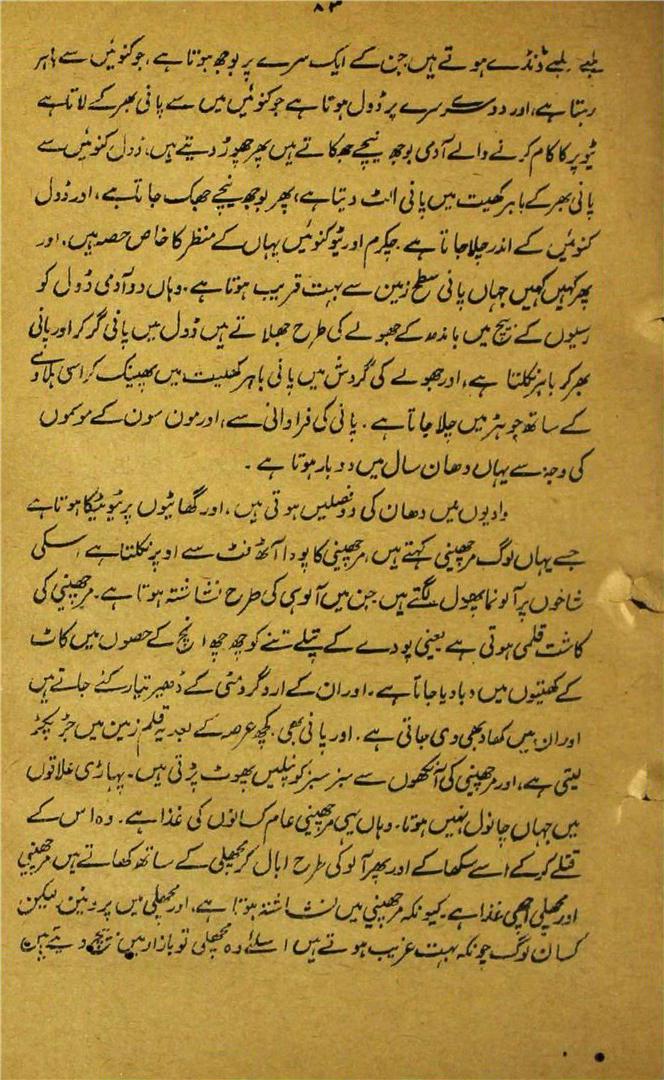 ۸۳
لمبے لمبے ڈنڈے ہوتے ہیں جن کے ایک سرے پر بوجھ ہوتا ہے، جو کنوئیں سے باہر
رہتا ہے، اور دوسرے سرے پر ڈول ہوتا ہے جو کنوئیں میں سے پانی بھر کے لاتا ہے
ٹیوپر کا کام کرنے والے آدمی بوجھ نیچے جھکاتے ہیں پھر چھوڑ دیتے ہیں، ڈول کنوئیں سے
پانی بھر کے باہر کھیت میں پانی الٹ دیتا ہے، پھر بوجھ نیچے جھک جاتا ہے، اور ڈول
کنوئیں کے اندر چلا جاتا ہے۔ چکرم اور ٹیو کنوئیں یہاں کے منظر کا خاص حصہ ہیں، اور
پھر کہیں کہیں جہاں پانی سطح زمین سے بہت قریب ہوتا ہے۔ وہاں دو آدمی ڈول کو
رسیوں کے بیچ میں باندھ کے جھولے کی طرح جھلاتے ہیں ڈول میں پانی گر کر اور پانی
بھر کر باہر نکلتا ہے، اور جھولے کی گردش میں پانی باہر کھیت میں پھینک کر اسی ہلاوے
کے ساتھ جوہڑ میں چلا جاتا ہے۔ پانی کی فراوانی سے، اور مون سون کے موسموں
کی وجہ سے یہاں دھان سال میں دو بار ہوتا ہے۔
وادیوں میں دھان کی دو فصلیں ہوتی ہیں، اور گھاٹیوں پر ٹیوٹیکا ہوتا ہے
جسے یہاں لوگ مرچینی کہتے ہیں، مرچینی کا پودا آٹھ فٹ سے اوپر نکلتا ہے، اسکی
شاخوں پر آلو نما پھول لگتے ہیں جن میں آلو ہی کی طرح نشاشتہ ہوتا ہے۔ مرچینی کی
کاشت قلمی ہوتی ہے یعنی پودے کے پتلے تنے کو چھ چھ انچ کے حصوں میں کاٹ
کے کھیتوں میں دبا دیا جاتا ہے۔ اور ان کے ارد گرد مٹی کے ڈھیر تیار کئے جاتے ہیں
اور ان میں کھاد بھی دی جاتی ہے۔ اور پانی بھی۔ کچھ عرصہ کے بعد یہ قلم زمین میں جڑ پکڑ
لیتی ہے، اور مرچینی کی آنکھوں سے سبز سبز کونپلیں پھوٹ پڑتی ہیں۔ پہاڑی علاقوں
میں جہاں چانول نہیں ہوتا۔ وہاں یہی مرچینی عام کسانوں کی غذا ہے۔ وہ اس کے
قتلے کر کے اسے سکھا کے اور پھر آلو کی طرح ابال کر مچھلی کے ساتھ کھاتے ہیں مرچینی
اور مچھلی اچھی غذا ہے۔ کیونکہ مرچینی میں نشاشتہ ہوتا ہے، اور مچھلی میں پروٹین۔ لیکن
کسان لوگ چونکہ بہت غریب ہوتے ہیں اسلئے وہ مچھلی تو بازار میں بیچ دیتے ہیں